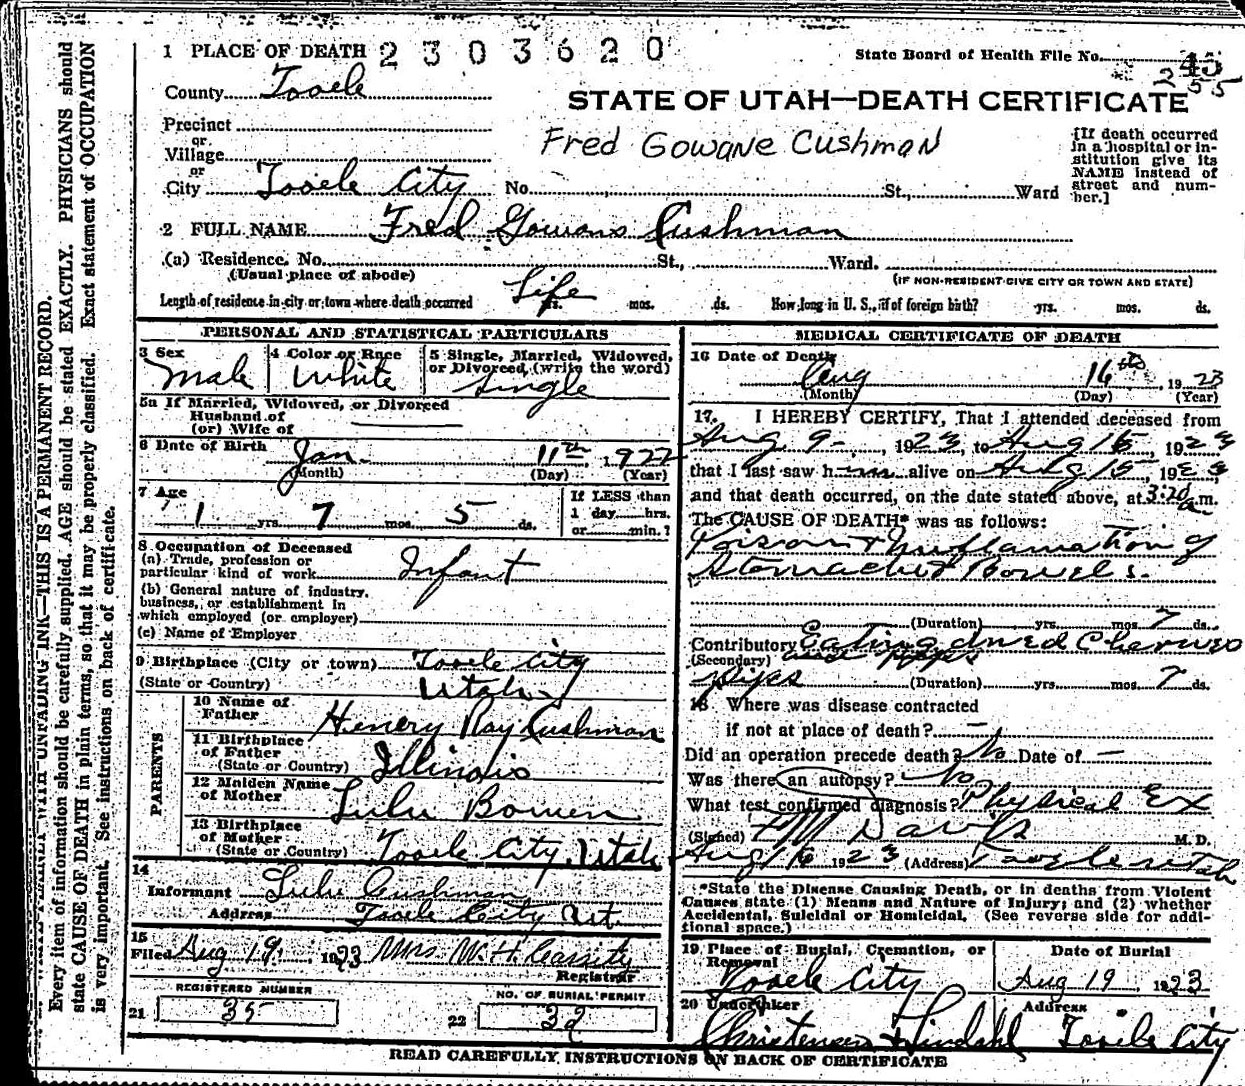 1 PLACE OF DEATH 2303620
State Board of Health File No. 45
255
County Tooele
STATE OF UTAH—DEATH CERTIFICATE
Precinct
or
Village
or
City Tooele City No. St., Ward
Fred Gowane Cushman
[If death occurred in a hospital or institution give its NAME instead of street and number.]
2 FULL NAME Fred Gowans Cushman
(a) Residence. No. St., Ward.
(Usual place of abode)
(IF NON-RESIDENT GIVE CITY OR TOWN AND STATE)
Length of residence in city or town where death occurred Life yrs. mos. ds. How long in U. S., if of foreign birth? yrs. mos. ds.
PERSONAL AND STATISTICAL PARTICULARS
3 Sex Male
4 Color or Race White
5 Single, Married, Widowed, or Divorced (write the word) Single
5a If Married, Widowed, or Divorced
Husband of
(or) Wife of
6 Date of Birth Jan. 11th, 1922
(Month) (Day) (Year)
7 Age 1 yrs. 7 mos. 5 ds.
If LESS than
1 day hrs.
or min.?
8 Occupation of Deceased
(a) Trade, profession or
particular kind of work Infant
(b) General nature of industry,
business, or establishment in
which employed (or employer)
(c) Name of Employer
9 Birthplace (City or town) Tooele City
(State or Country) Utah
PARENTS
10 Name of
Father Henery Ray Cushman
11 Birthplace
of Father
(State or Country) Illinois
12 Maiden Name
of Mother Lulu Bowen
13 Birthplace
of Mother
(State or Country) Tooele City, Utah
14
Informant Lulu Cushman
Address Tooele City Ut.
15
Filed Aug 19, 1923 Mrs. W. H. Cassity
Registrar
REGISTERED NUMBER
21 35
NO. OF BURIAL PERMIT
22 32
MEDICAL CERTIFICATE OF DEATH
16 Date of Death
Aug 16th, 1923
(Month) (Day) (Year)
17. I HEREBY CERTIFY, That I attended deceased from
Aug 9, 1923, to Aug 16, 1923
that I last saw h im alive on Aug 15, 1923,
and that death occurred, on the date stated above, at 3:20 a.m.
The CAUSE OF DEATH* was as follows:
Poison & Inflamation of
Stomach & Bowels.
(Duration) yrs. mos. 7 ds.
Contributory Eating dried Cherries
(Secondary) and
(Duration) yrs. mos. 7 ds.
18. Where was disease contracted
if not at place of death? —
Did an operation precede death? No Date of —
Was there an autopsy? No
What test confirmed diagnosis? Physical Ex
(Signed) M. D.
Aug 16 1923 (Address) Tooele Utah
*State the Disease Causing Death, or in deaths from Violent
Causes state (1) Means and Nature of Injury; and (2) whether
Accidental, Suicidal or Homicidal. (See reverse side for addi-
tional space.)
19 Place of Burial, Cremation, or
Removal
Tooele City
Date of Burial
Aug 19, 1923
20 Undertaker
Christensen Lindahl
Address
Tooele City
READ CAREFULLY INSTRUCTIONS ON BACK OF CERTIFICATE
UNFADING INK—THIS IS A PERMANENT RECORD.
Every item of information should be carefully supplied. AGE should be stated EXACTLY. PHYSICIANS should
state CAUSE OF DEATH in plain terms, so that it may be properly classified. Exact statement of OCCUPATION
is very important. See instructions on back of certificate.